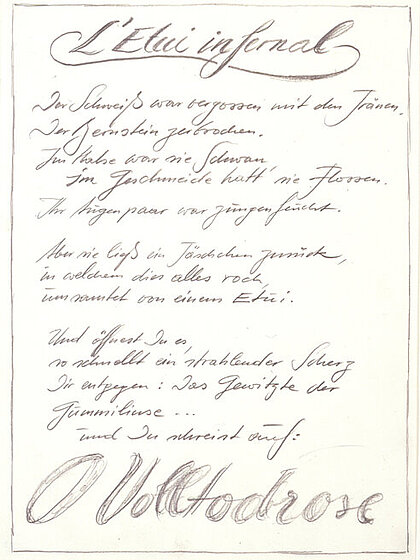 L'Etui infernal
Der Schweiß war vergossen mit den Tränen.
Der Bernstein zerbrochen.
Im Halse war sie Schwan,
im Geschmeide hatt' sie Flossen.
Ihr Augenpaar war zungenfeucht.
Aber sie ließ ein Täschchen zurück,
in welchem dies alles roch,
umsamtet von einem Etui.
Und öffnest Du es,
so schnellt ein strahlender Scherz
Dir entgegen: Das Gewitzte der
Gummilinse ...
und Du schreist auf:
O Volltodrose